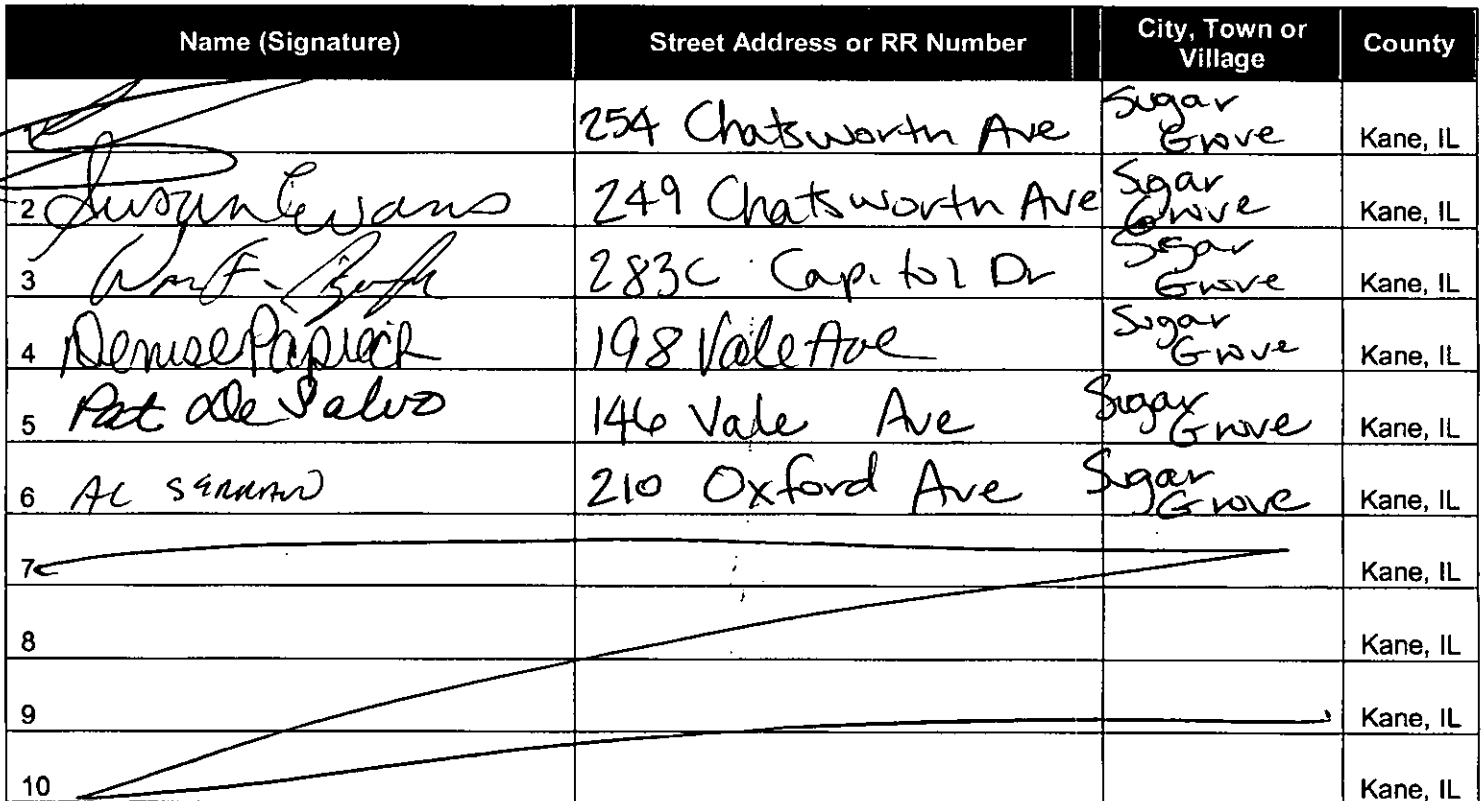 Name (Signature) Street Address or RR Number City, Town or Village County
254 Chatsworth Ave Sugar Grove Kane, IL
2 Susan Evans 249 Chatsworth Ave Sugar Grove Kane, IL
3 283C Capitol Dr Sugar Grove Kane, IL
4 Denise 198 Vale Ave Sugar Grove Kane, IL
5 Pat De Salvo 146 Vale Ave Sugar Grove Kane, IL
6 AL 210 Oxford Ave Sugar Grove Kane, IL
7 Kane, IL
8 Kane, IL
9 Kane, IL
10 Kane, IL